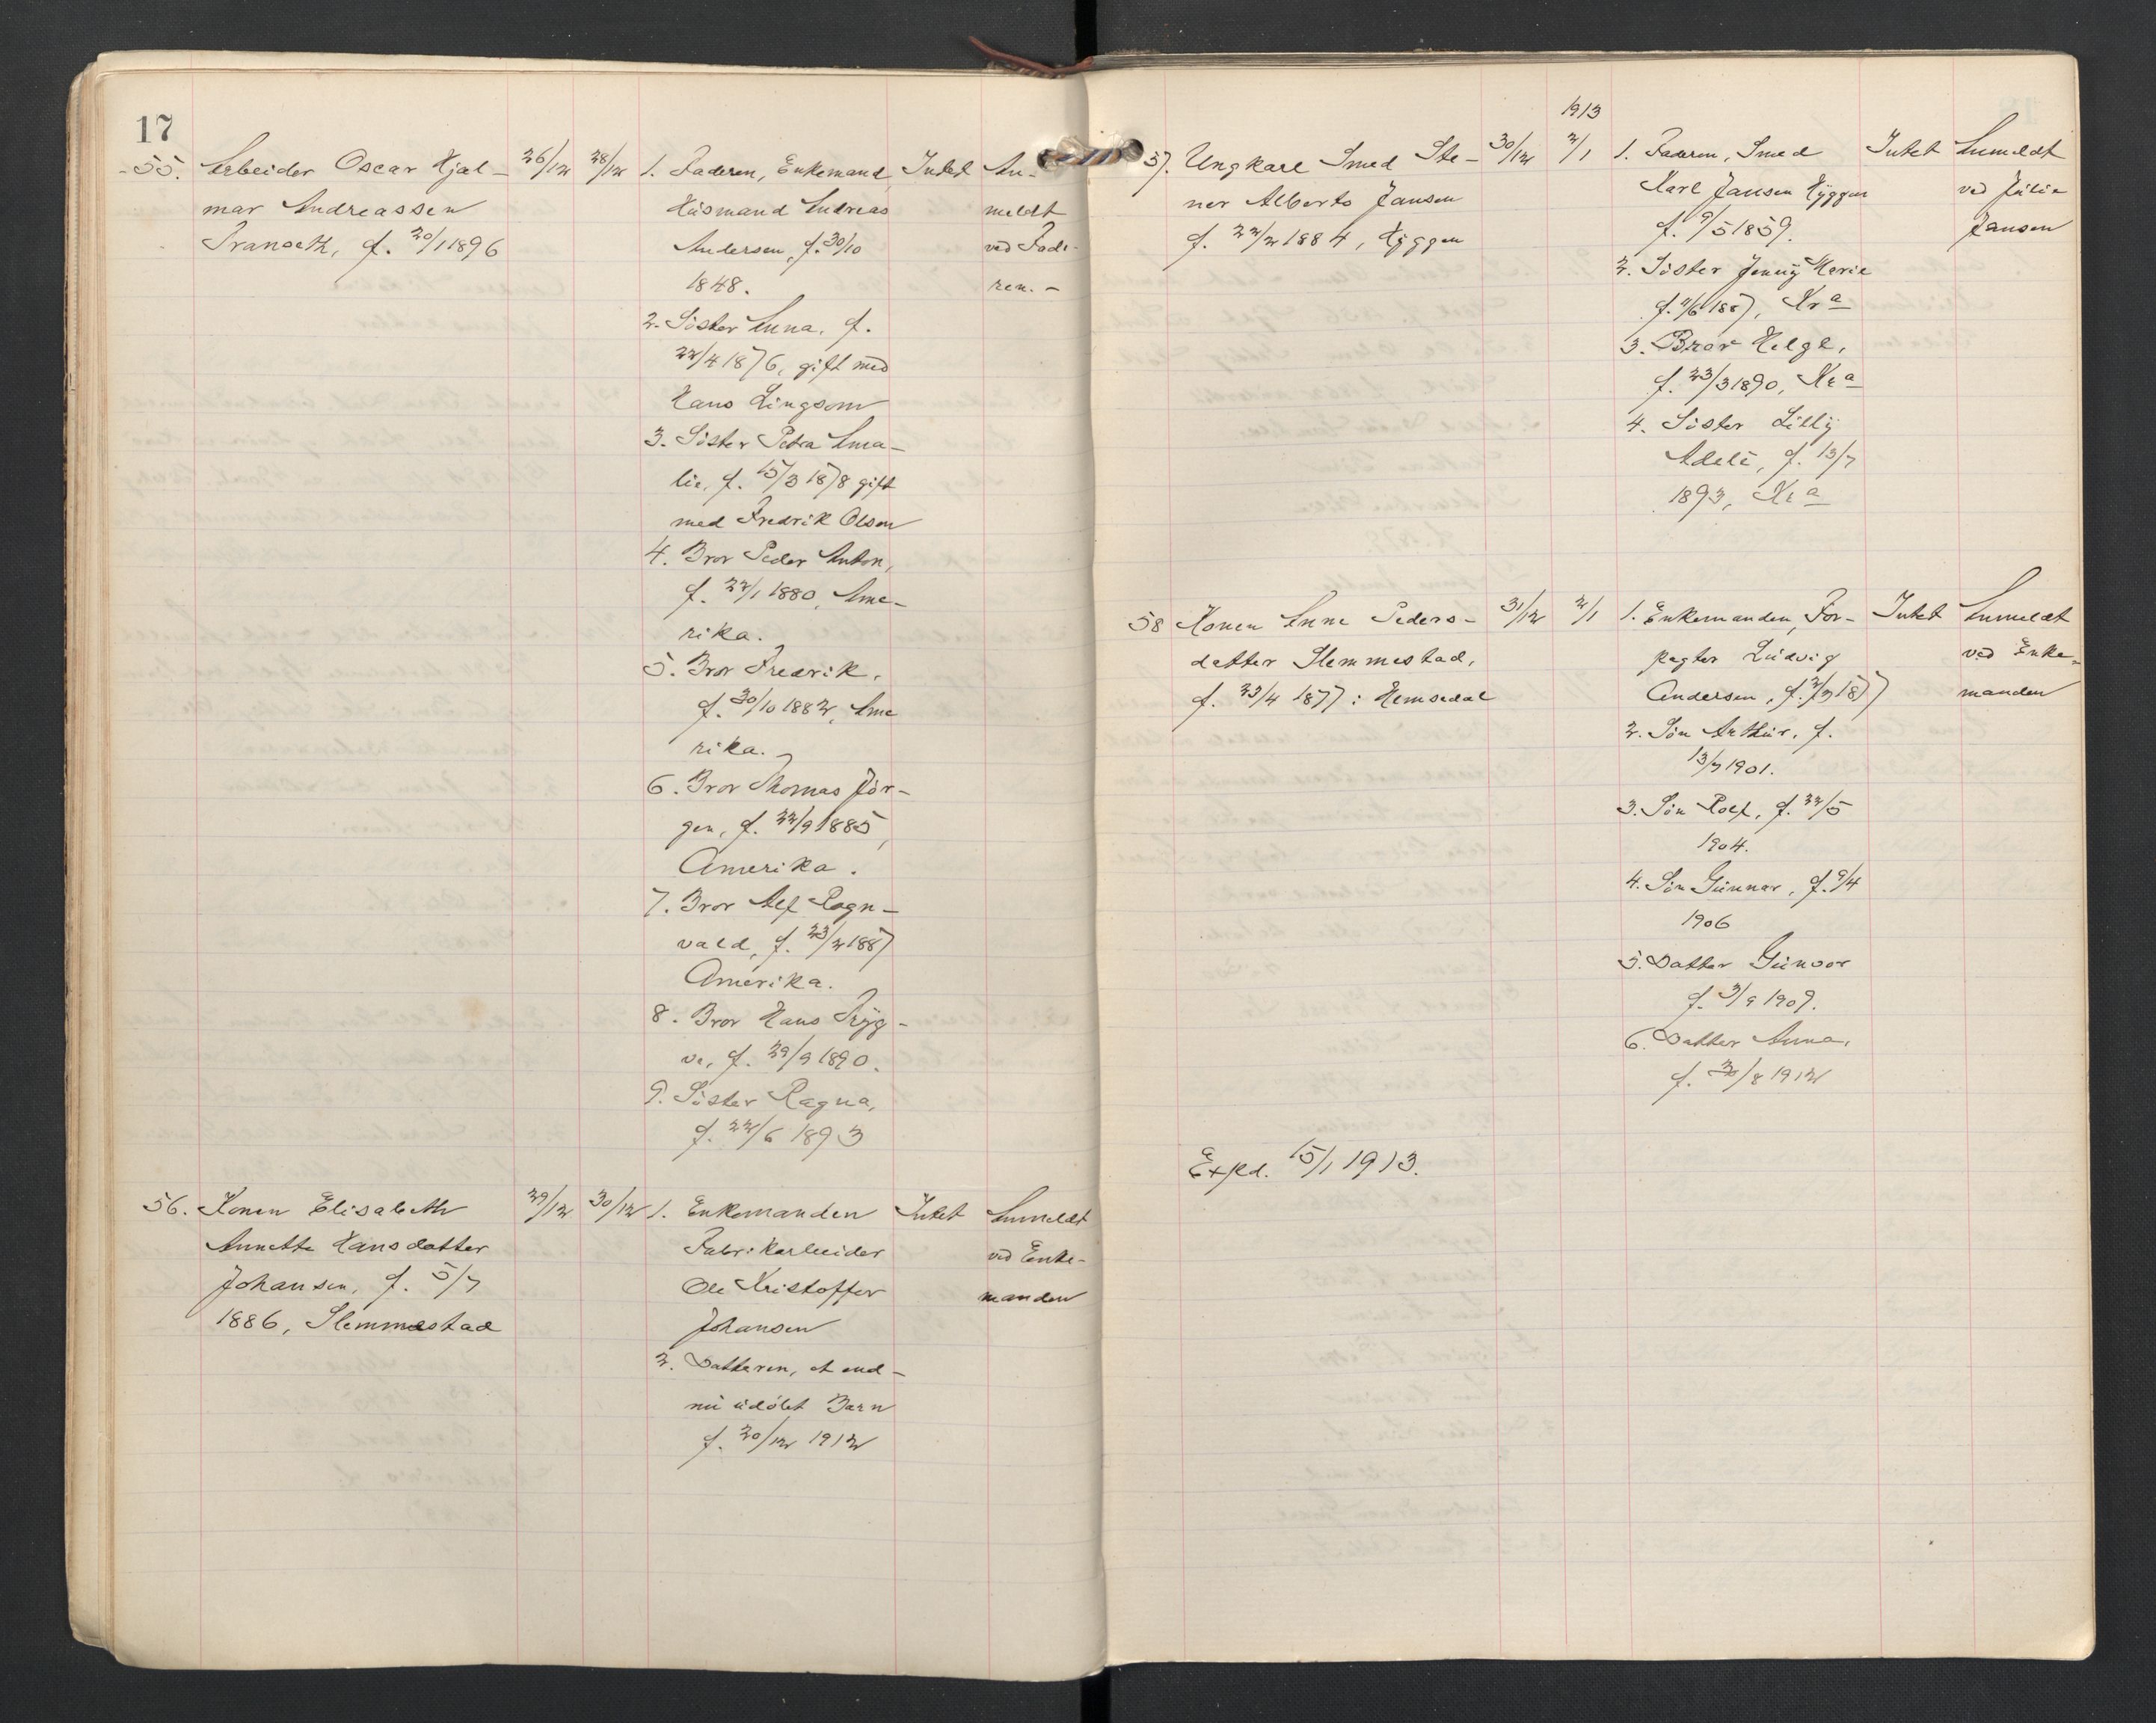 17
55. Arbeider Oscar Hjal- 26/12 28/12 1. Faderen, Enkemand Intet An-
mar Andreassen Husmand Andreas meldt
f. 20/1 1896 Andersen, f. 30/10 ved Fade-
1848. ren. -
2. Søster Anna, f.
22/4 1876, gift med
Hans Lingsom
3. Søster Petra Ama-
lie, f. 15/3 1878 gift
med Fredrik Olsen
4. Bror Peder Anton,
f. 22/1 1880, Ame-
rika.
5. Bror Fredrik,
f. 30/10 1882, Ame
rika.
6. Bror Thomas Jør-
gen, f. 22/9 1885,
Amerika.
7. Bror Alf Ragn-
vald, f. 23/2 1887
Amerika.
8. Bror Hans Tryg-
ve, f. 29/9 1890.
9. Søster Ragna,
f. 22/6 1893
56. Konen Elisabeth 29/12 30/12 1. Enkemanden Intet Anmeldt
Annette Hansdatter Fabrikarbeider ved Enke-
Johansen, f. 5/7 Ole Kristoffer manden
1886, Slemmestad Johansen
2. Datteren, et end-
nu udøbt Barn
f. 20/12 1912
1913
57. Ungkarl Smed Ste- 30/12 2/1 1. Faderen, Smed Intet Anmeldt
ner Alberto Jansen Karl Jansen Hyggen ved Julie
f. 22/2 1884, Hyggen f. 9/5 1859. Jansen
2. Søster Jenny Marie
f. 1887, Kra
3. Bror Helge,
f. 23/3 1890, Kra
4. Søster Lilly
Adele, f. 13/7
1893, Kra
58 Konen Anne Peders- 31/12 2/1 1. Enkemanden, For- Intet Anmeldt
datter Slemmestad, pagter Ludvig ved Enke-
f. 23/4 1877 i Hemsedal Andersen, f. 1877 manden
2. Søn Arthur, f.
13/7 1901.
3. Søn Rolf, f. 22/5
1904.
4. Søn Gunnar, f. 9/4
1906
5. Datter Gunvor
f. 3/9 1909.
6. Datter Anna,
f. 30/8 1912
Expd. 15/1 1913.